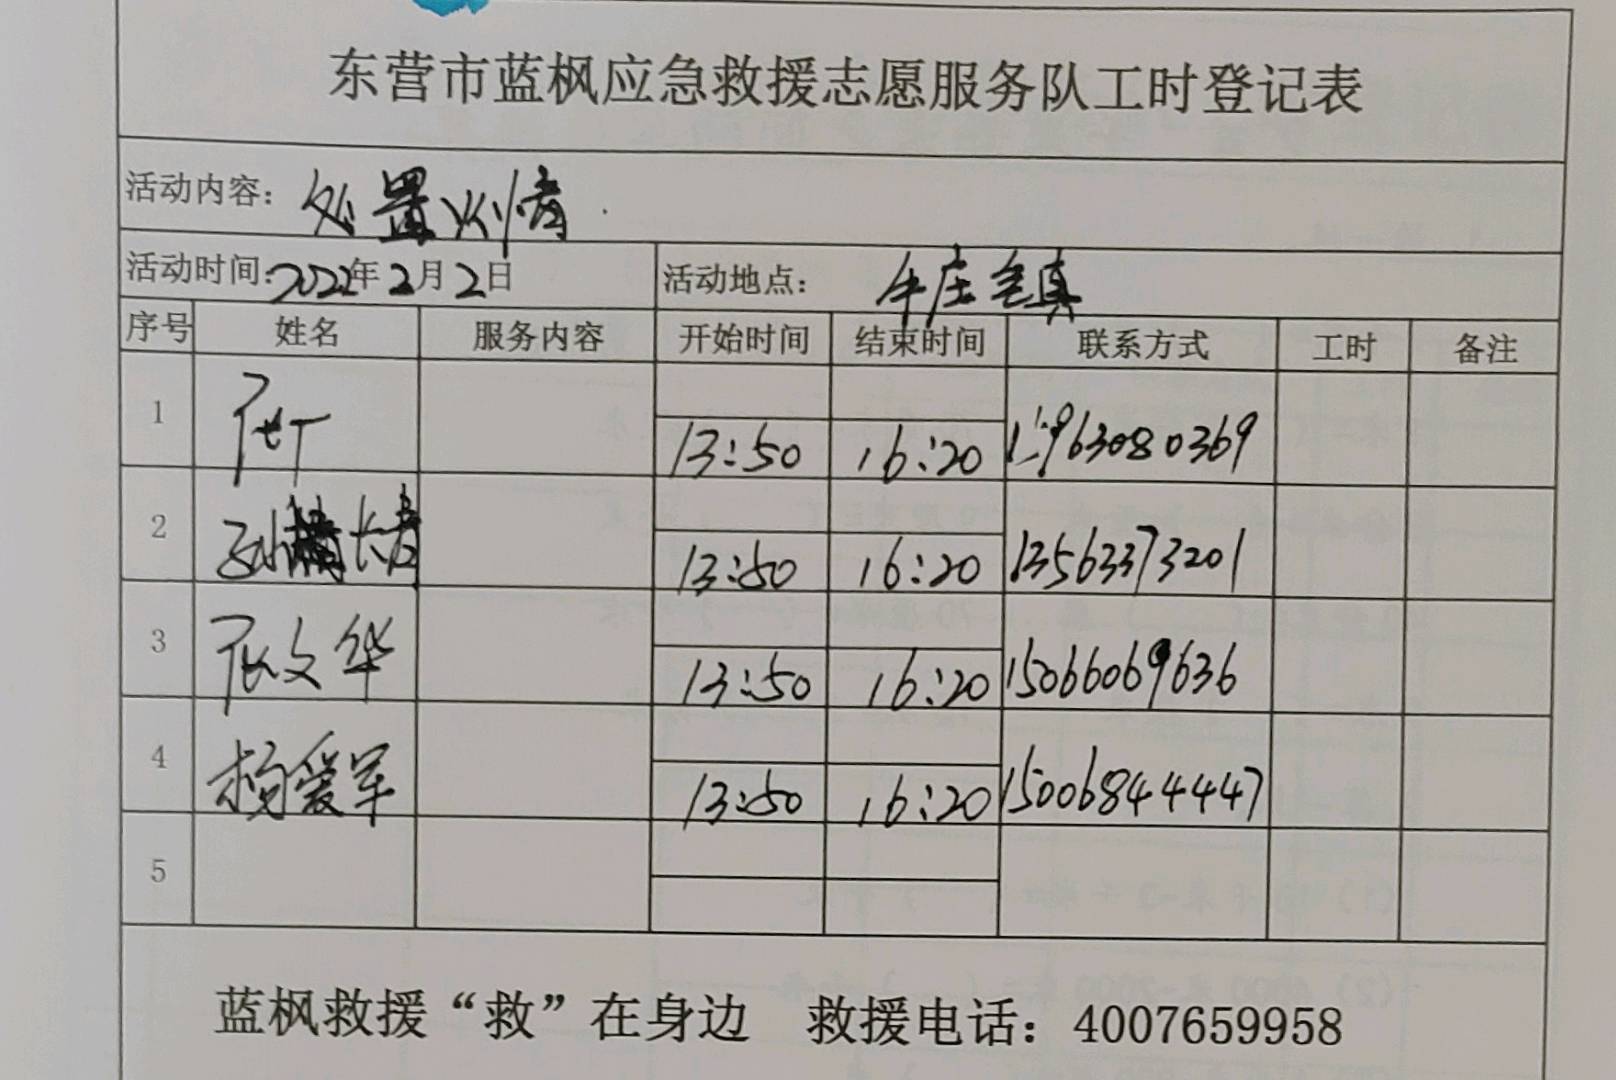 东营市蓝枫应急救援志愿服务队工时登记表
活动内容：处置火情
活动时间：2022年2月2日 活动地点：牛庄镇
序号 姓名 服务内容 开始时间 结束时间 联系方式 工时 备注
1 13:50 16:20
2 孙 长 13:50 16:20 13563373201
3 张文华 13:50 16:20 15066069636
4 杨爱军 13:50 16:20 15006844447
5
蓝枫救援“救”在身边 救援电话：4007659958